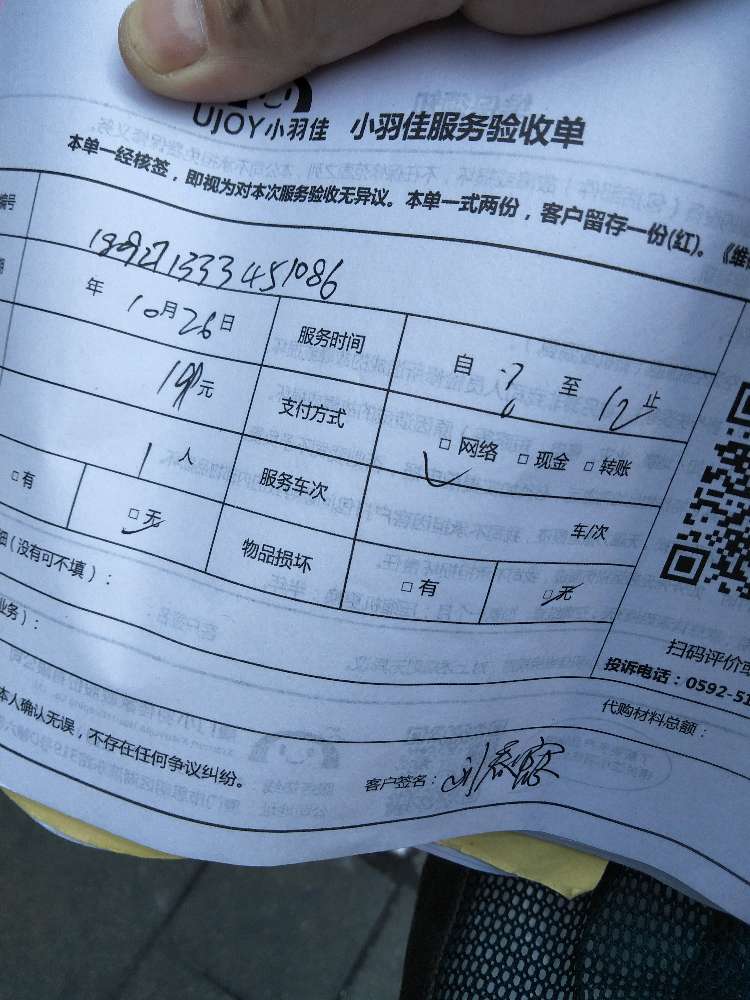 UJOY小羽佳 小羽佳服务验收单
本单一经核签，即视为对本次服务验收无异议。本单一式两份，客户留存一份(红)。《维
编号
年 10月26日 服务时间 自 至 12 止
元 支付方式 □ 网络 □ 现金 □ 转账
1 人 服务车次 车/次
□ 有 □ 无 物品损坏 □ 有 □ 无
细(没有可不填)：
业务)：
扫码评价
投诉电话：0592-51
代购材料总额：
本人确认无误，不存在任何争议纠纷。
客户签名：